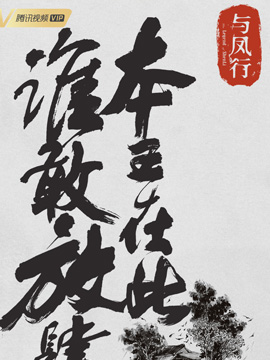 腾讯视频 VIP
与凤行
本王在此
谁敢放肆